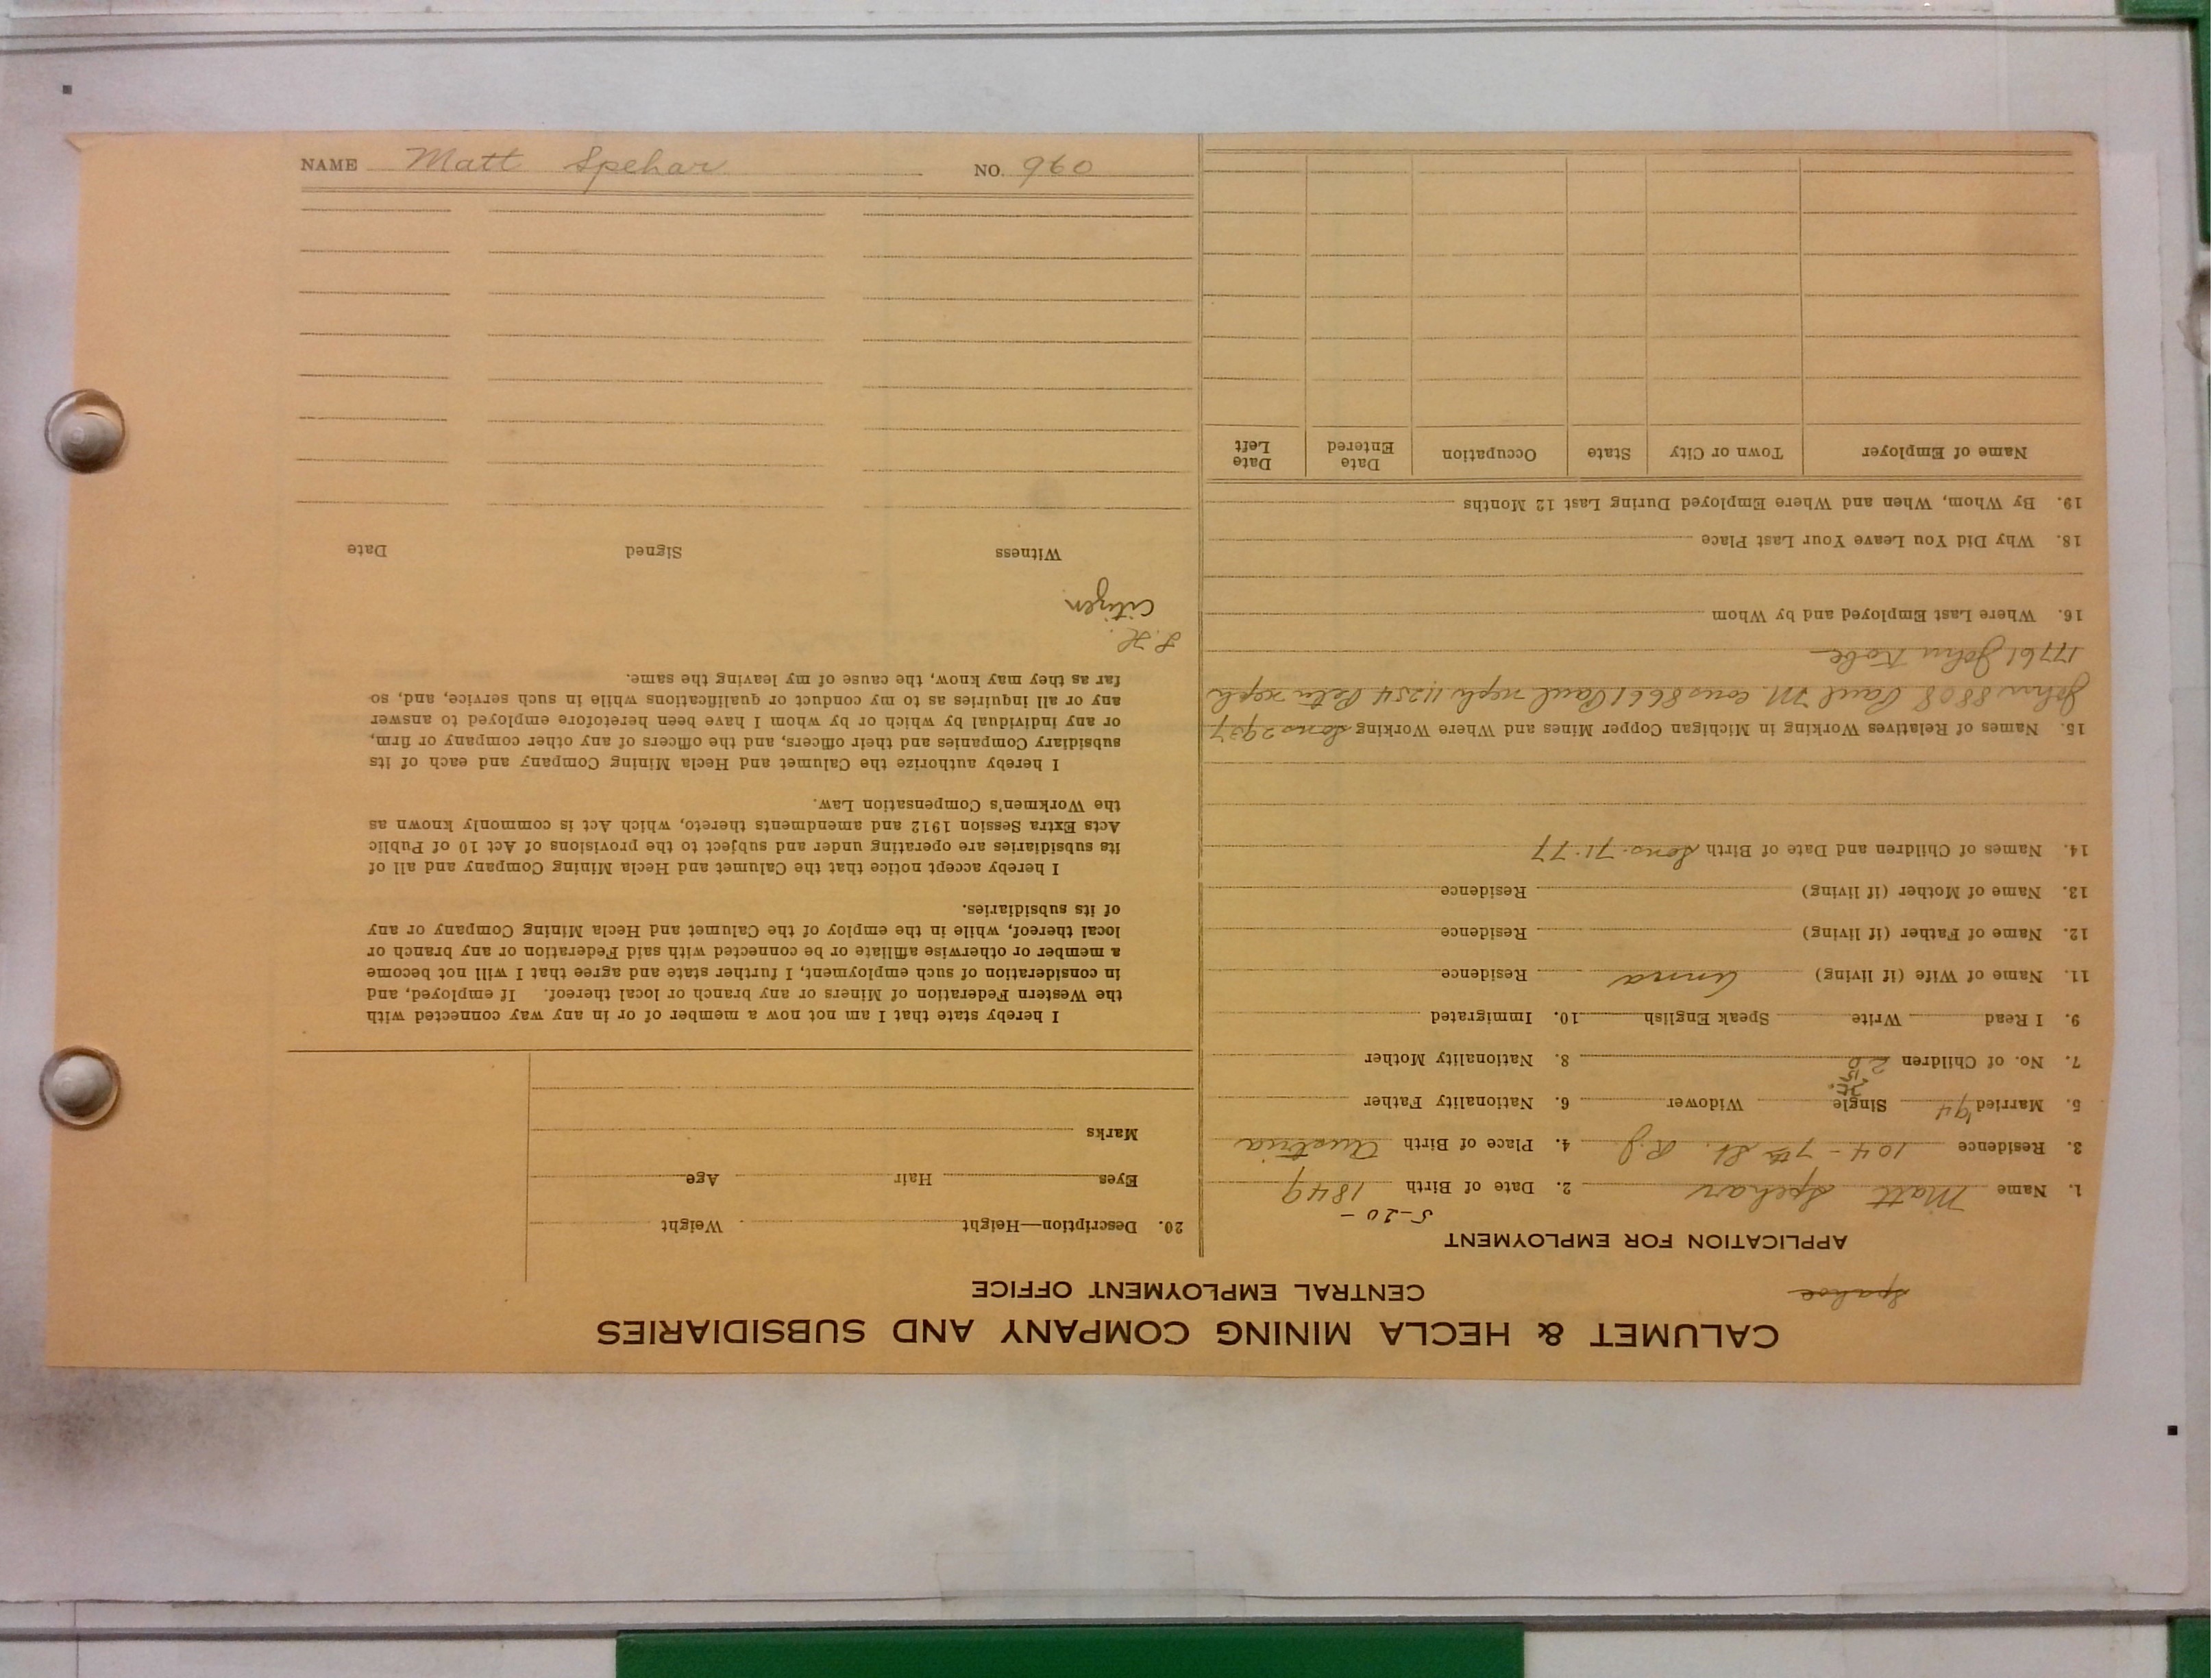 CALUMET & HECLA MINING COMPANY AND SUBSIDIARIES
CENTRAL EMPLOYMENT OFFICE
Spahoe
APPLICATION FOR EMPLOYMENT
5-20-
1. Name Matt Spehar 2. Date of Birth 1849
3. Residence 104-7th St. R.J. 4. Place of Birth Austria
5. Married '94 Single Widower 6. Nationality Father
7. No. of Children 2 8. Nationality Mother
9. I Read Write Speak English 10. Immigrated
11. Name of Wife (if living) Anna Residence
12. Name of Father (if living) Residence
13. Name of Mother (if living) Residence
14. Names of Children and Date of Birth Sons. 71.77
15. Names of Relatives Working in Michigan Copper Mines and Where Working Sons 2937
John 8808 Paul M. cous 8661 Paul neph 11254 Petr neph
17761 John Kobe
16. Where Last Employed and by Whom
18. Why Did You Leave Your Last Place
19. By Whom, When and Where Employed During Last 12 Months
Name of Employer Town or City State Occupation Date Entered Date Left
20. Description—Height Weight
Eyes Hair Age
Marks
I hereby state that I am not now a member of or in any way connected with
the Western Federation of Miners or any branch or local thereof. If employed, and
in consideration of such employment, I further state and agree that I will not become
a member or otherwise affiliate or be connected with said Federation or any branch or
local thereof, while in the employ of the Calumet and Hecla Mining Company or any
of its subsidiaries.
I hereby accept notice that the Calumet and Hecla Mining Company and all of
its subsidiaries are operating under and subject to the provisions of Act 10 of Public
Acts Extra Session 1912 and amendments thereto, which Act is commonly known as
the Workmen's Compensation Law.
I hereby authorize the Calumet and Hecla Mining Company and each of its
subsidiary Companies and their officers, and the officers of any other company or firm,
or any individual by which or by whom I have been heretofore employed to answer
any or all inquiries as to my conduct or qualifications while in such service, and, so
far as they may know, the cause of my leaving the same.
Citizen
Witness Signed Date
NAME Matt Spehar NO. 960